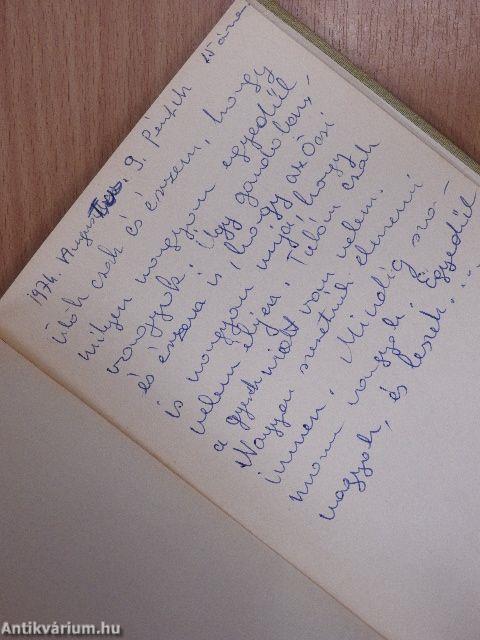 1974. Augusztus. 9. Péntek
Ülök csak és érzem, hogy
milyen nagyon egyedül
vagyok! Úgy gondolom,
és érzem is, hogy az Öcsi
is nagyon unja, hogy
velem éljen. Talán csak
a gyerek miatt van velem.
Nagyon szeretnék elmenni
innen. Mindig szo-
morú vagyok. Egyedül
vagyok, és leszek....
Antikvárium.hu